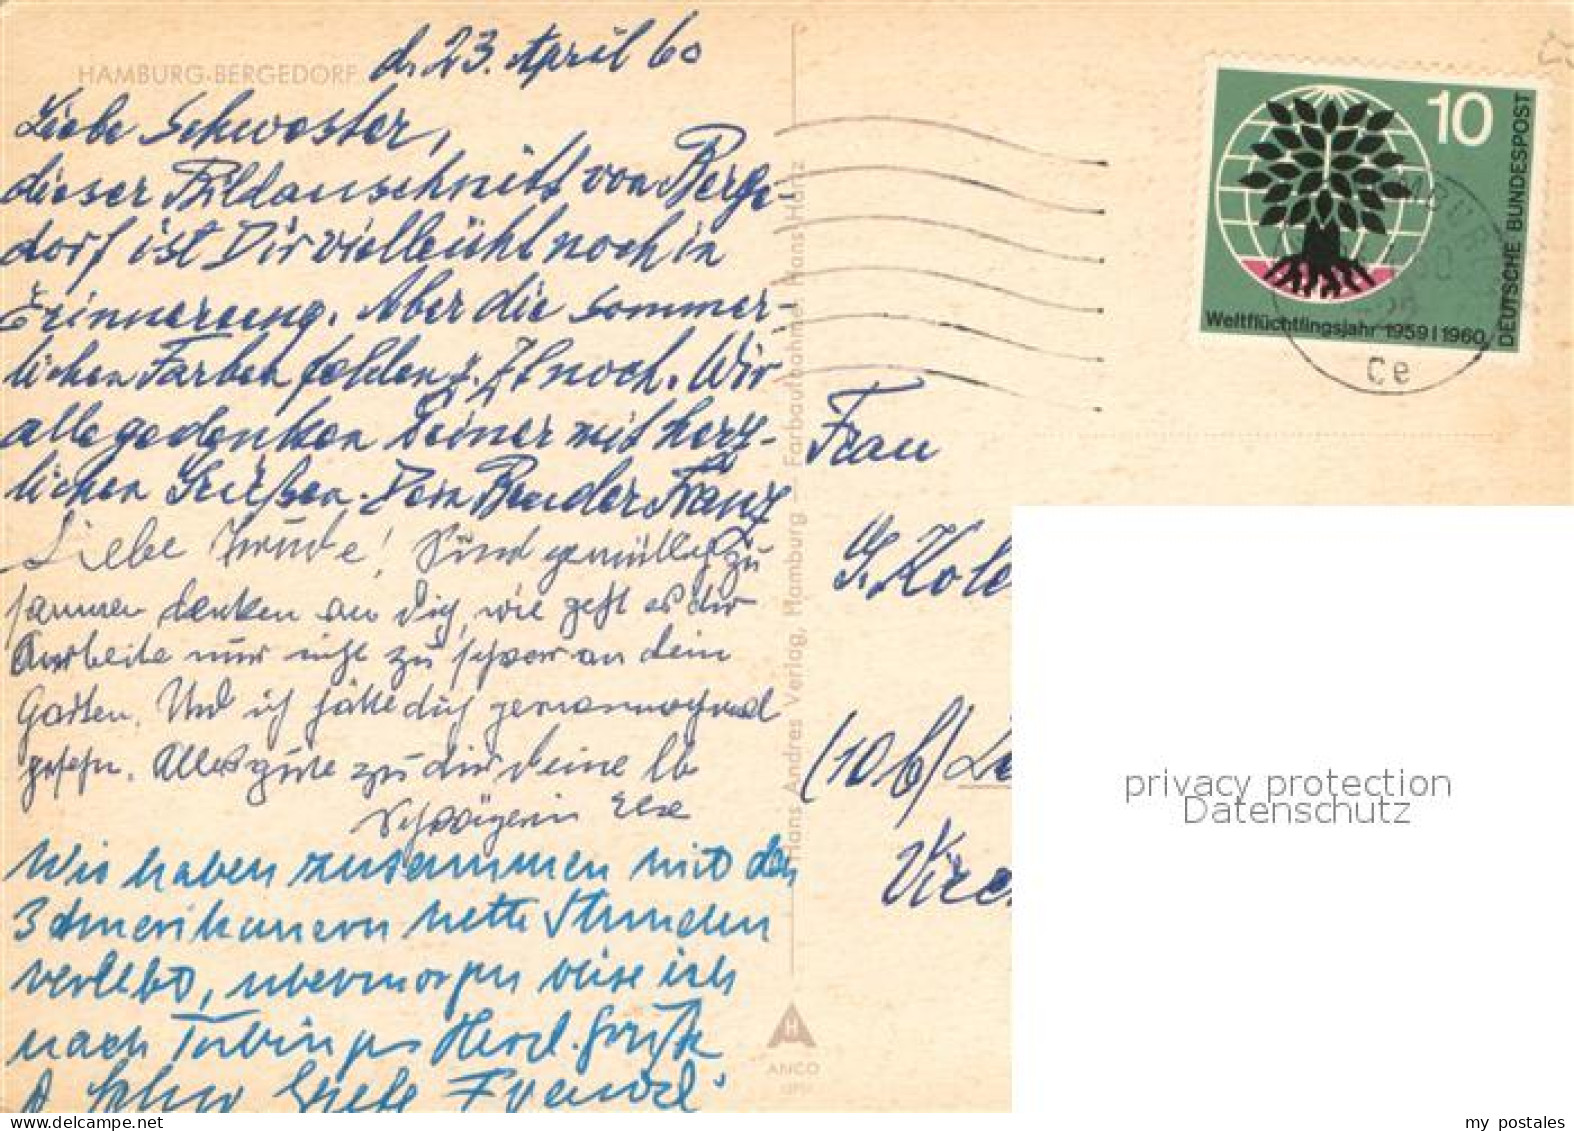 HAMBURG-BERGEDORF
d. 23. April 60
Liebe Schwester,
dieser Bildausschnitt von Berge-
dorf ist Dir vielleicht noch in
Erinnerung. Aber die sommer-
lichen Farben fehlen z. Zt noch. Wir
alle gedenken Deiner mit herz-
lichen Grüßen. Dein Bruder Franz
Liebe Trude! Sind gemütlich zu
sammen denken an dich, wie geht es dir
Arbeite nur nicht zu schwer an dein
Garten. Und ich hätte dich gerne nochmal
gesehn. Alles gute zu dir deine lb
Schwägerin Else
Wir haben zusammen mit den
3 Amerikanern nette Stunden
verlebt, übermorgen reise ich
nach Tübingen Herzl. Grüße
Grete
Hans Andres Verlag, Hamburg – Farbaufnahme: Hans Hartz
ANCO
10
DEUTSCHE BUNDESPOST
Weltflüchtlingsjahr 1959 | 1960
Ce
Frau
G. Kole
(10b)
privacy protection
Datenschutz
www.delcampe.net
my postales